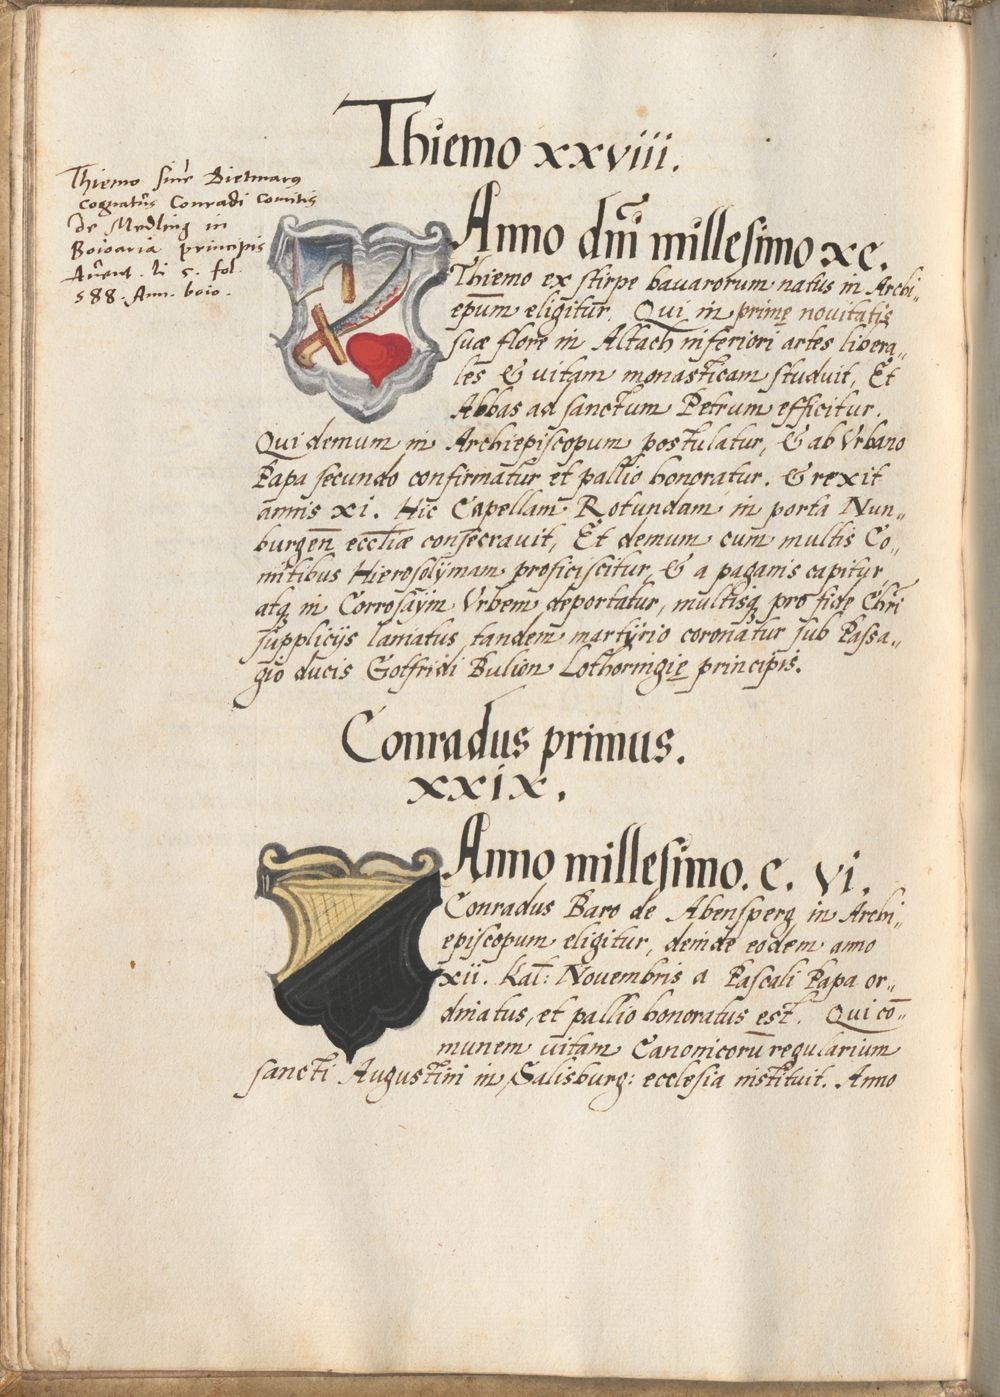 Thiemo xxviii.
Thiemo siue Dietmarus
cognatus Conradi Comitis
de Medling in
Boioaria principis
Auent. li 5. fol.
588. Ann. boio.
Anno dni millesimo xc.
Thiemo ex stirpe bauarorum natus in Archi„
epum eligitur. Qui in prime nouitatis
suæ flore in Altach inferiori artes libera„
les & uitam monasticam studuit, Et
Abbas ad sanctum Petrum efficitur.
Qui demum in Archiepiscopum postulatur, & ab Vrbano
Papa secundo confirmatur et pallio honoratur. & rexit
annis xi. Hic Capellam Rotundam in porta Nun„
burgen̄ eccliæ consecrauit, Et demum cum multis Co„
mitibus Hierosolÿmam proficiscitur, & a paganis capitur
atq; in Corrosaÿm Vrbem deportatur, multisq; pro fide Chri
supplicijs laniatus, tandem martÿrio coronatur sub Passa„
gio ducis Gotfridi Bulion Lothoringie principis.
Conradus primus.
xxix.
Anno millesimo. c. vi.
Conradus Baro de Abensperg in Archi„
episcopum eligitur, deinde eodem anno
xii. Kal: Nouembris a Pascali Papa or„
dinatus, et pallio honoratus est. Qui cō„
munem uitam Canonicorū regularium
sancti Augustini in Salisburg: ecclesia instituit. Anno